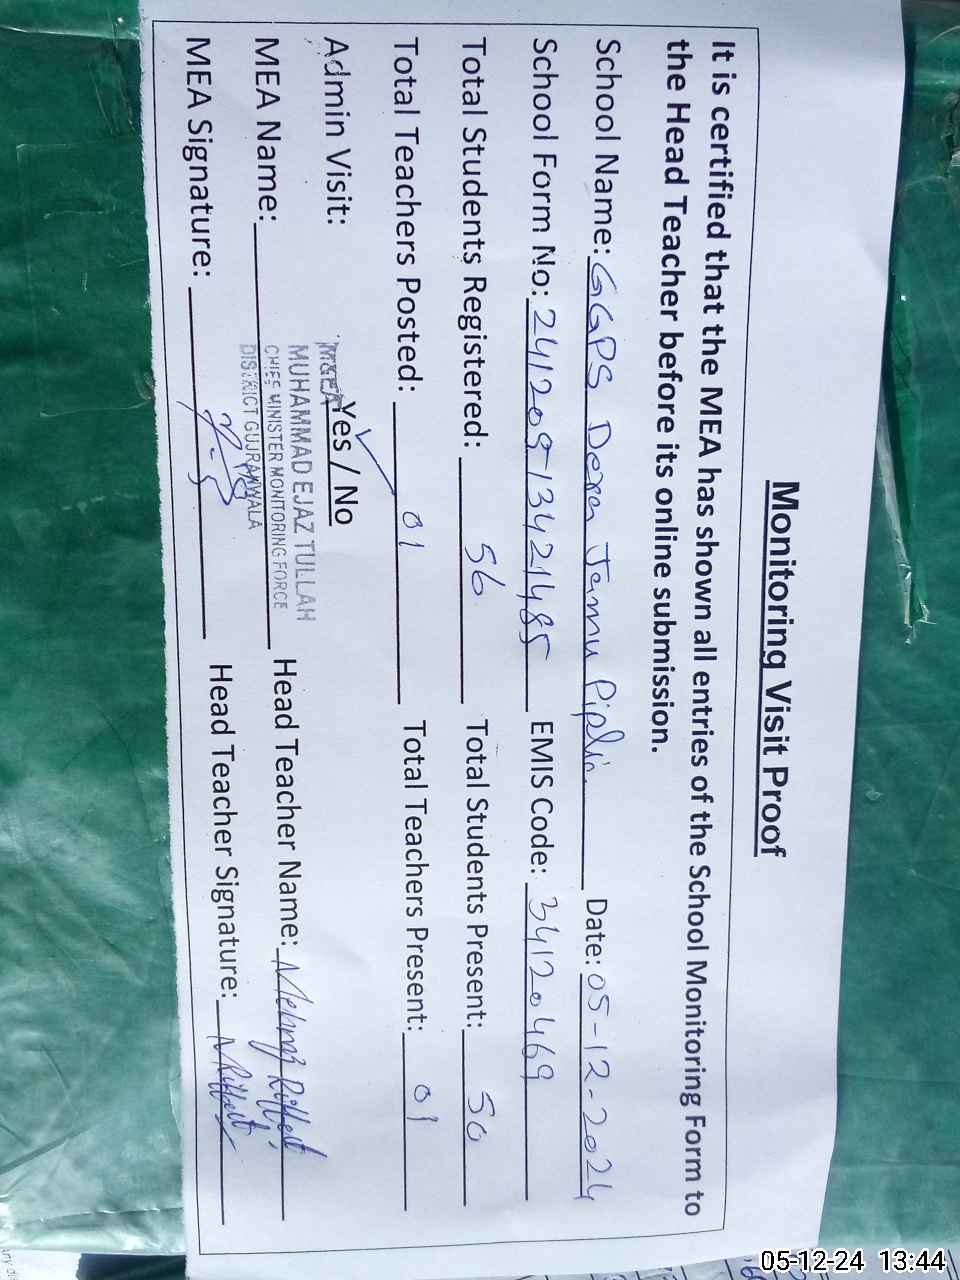 Monitoring Visit Proof
It is certified that the MEA has shown all entries of the School Monitoring Form to
the Head Teacher before its online submission.
School Name: GGPS Dera Jamu Piplia Date: 05-12-2024
School Form No: 24120913421485 EMIS Code: 34120469
Total Students Registered: 56 Total Students Present: 50
Total Teachers Posted: 01 Total Teachers Present: 01
Admin Visit: Yes / No
M&EA
MUHAMMAD EJAZ TULLAH
CHIEF MINISTER MONITORING FORCE
DISTRICT GUJRANWALA
MEA Name: Head Teacher Name: Riffat
MEA Signature: Head Teacher Signature:
05-12-24 13:44